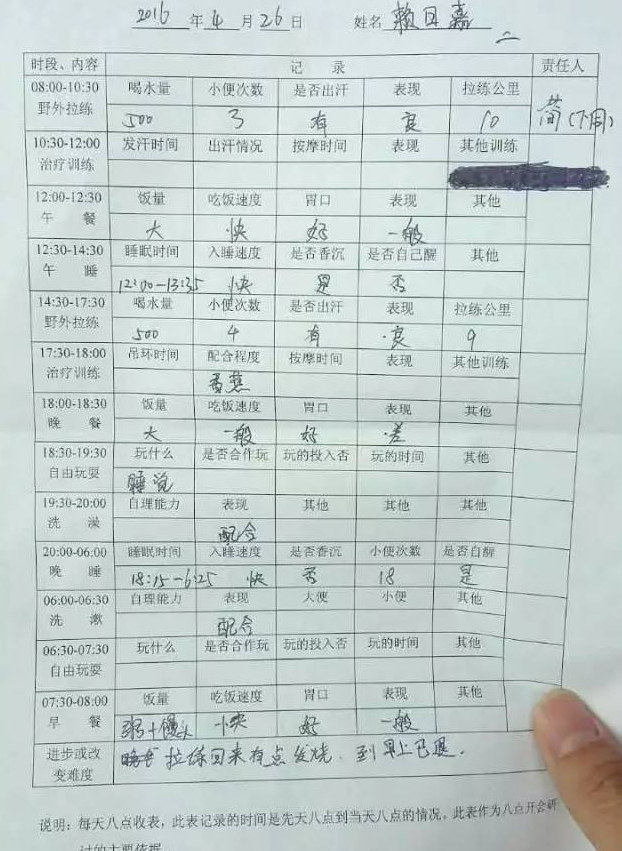 2016 年 4 月 26 日 姓名 赖日嘉
时段、内容 记 录 责任人
08:00-10:30 喝水量 小便次数 是否出汗 表现 拉练公里
野外拉练 500 3 有 良 10 (下同)
10:30-12:00 发汗时间 出汗情况 按摩时间 表现 其他训练
治疗训练
12:00-12:30 饭量 吃饭速度 胃口 表现 其他
午 餐 大 快 好 一般
12:30-14:30 睡眠时间 入睡速度 是否香沉 是否自己醒 其他
午 睡 12:00-13:35 快 是 否
14:30-17:30 喝水量 小便次数 是否出汗 表现 拉练公里
野外拉练 500 4 有 良 9
17:30-18:00 吊环时间 配合程度 按摩时间 表现 其他训练
治疗训练 香蕉
18:00-18:30 饭量 吃饭速度 胃口 表现 其他
晚 餐 大 一般 好 差
18:30-19:30 玩什么 是否合作玩 玩的投入否 玩的时间 其他
自由玩耍 睡觉
19:30-20:00 自理能力 表现 其他 其他 其他
洗 澡 配合
20:00-06:00 睡眠时间 入睡速度 是否香沉 小便次数 是否自醒
晚 睡 18:15-6:25 快 否 18 是
06:00-06:30 自理能力 表现 大便 小便 其他
洗 漱 配合
06:30-07:30 玩什么 是否合作玩 玩的投入否 玩的时间 其他
自由玩耍
07:30-08:00 饭量 吃饭速度 胃口 表现 其他
早 餐 粥+馒头 快 好 一般
进步或改 拉练回来有点发烧、到早上已退.
变难度
说明：每天八点收表，此表记录的时间是先天八点到当天八点的情况，此表作为八点开会研
讨的主要依据